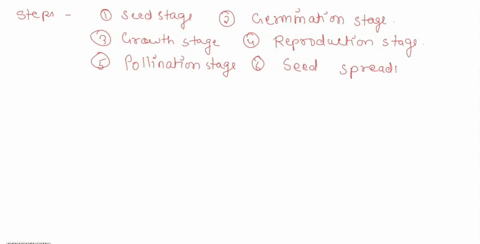 Steps - ① Seed stage ② Germination stage.
③ Growth stage ④ Reproduction stage.
⑤ Pollination stage ⑥ Seed spreadi